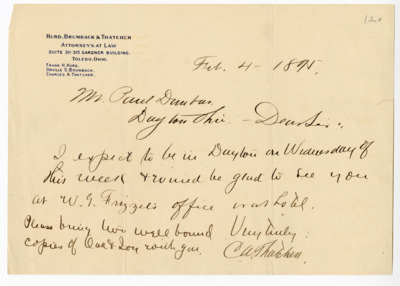 HURD, BRUMBACK & THATCHER
ATTORNEYS AT LAW
SUITE 311-315 GARDNER BUILDING.
TOLEDO, OHIO.
FRANK H. HURD,
ORVILLE S. BRUMBACK,
CHARLES A. THATCHER.
Feb. 4 - 1895.
Mr. Paul Dunbar
Dayton Ohio - Dear Sir:
I expect to be in Dayton on Wednesday of
this week & would be glad to see you
at W. G. Frizzell's office or at hotel.
Please bring two well bound
copies of Oak & Ivy with you.
Very truly:
C A Thatcher